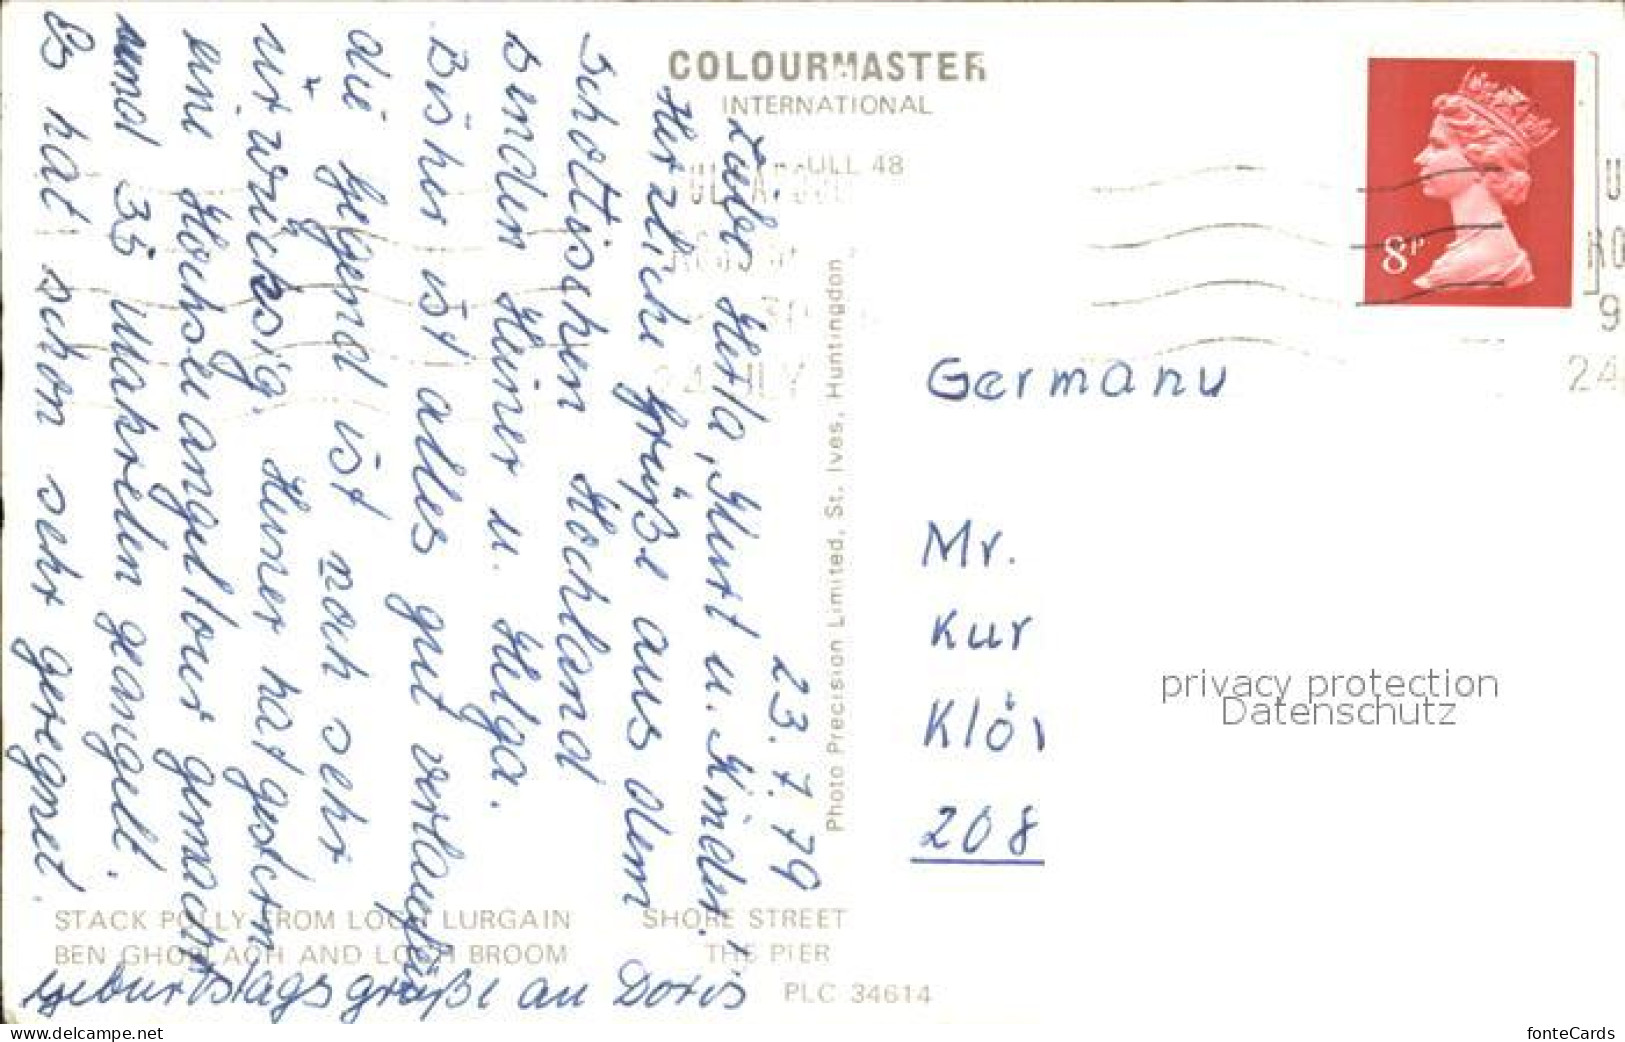 COLOURMASTER
INTERNATIONAL
ULL 48
8P
Germanu
Mr.
Kur
Klöı
208
privacy protection
Datenschutz
Photo Precision Limited, St. Ives, Huntingdon
23.7.79
Liebe Herta, Kurt u. Kinder!
Herzliche Grüße aus dem
Schottischen Hochland
senden Heiner u. Helga.
Bisher ist alles gut verlaufen
die Gegend ist noch sehr
urwüchsig. Heiner hat gestern
eine Hochseeangeltour gemacht
und 35 Makrelen geangelt.
Es hat schon sehr geregnet.
Geburtstagsgrüße an Doris
STACK POLLY FROM LOCH LURGAIN
SHORE STREET
BEN GHOBLACH AND LOCH BROOM
THE PIER
PLC 34614
www.delcampe.net
fonteCards